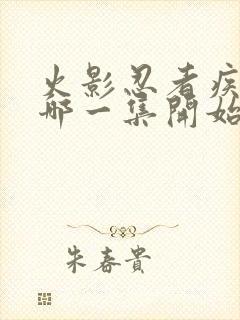 火影忍者疾
哪一集開始
朱春貴